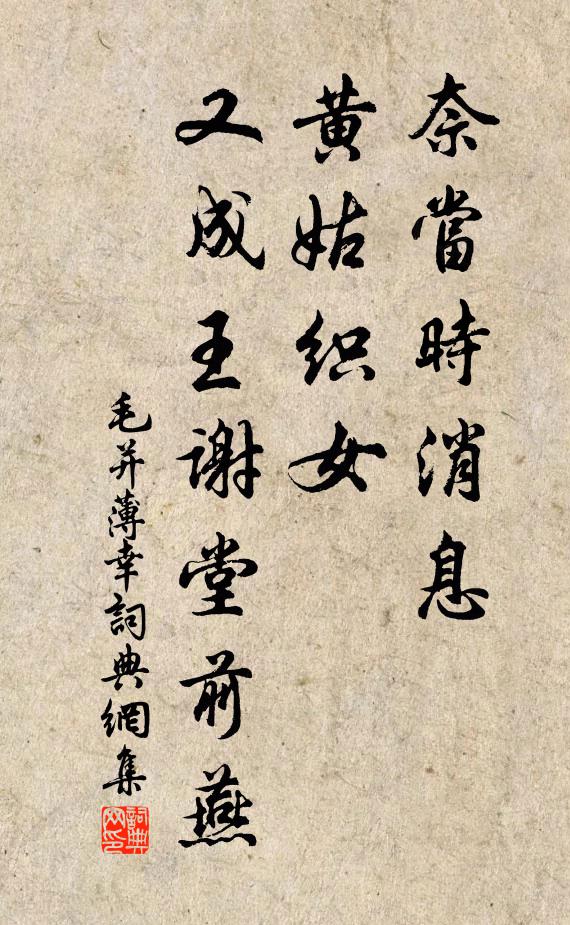 奈當時消息
黃姑织女
又成王谢堂前燕
毛幵薄幸詞典網集
詞典网印